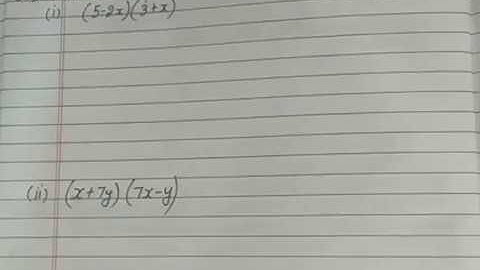 (i) (5-2x)(3+x)
(ii) (x+7y)(7x-y)